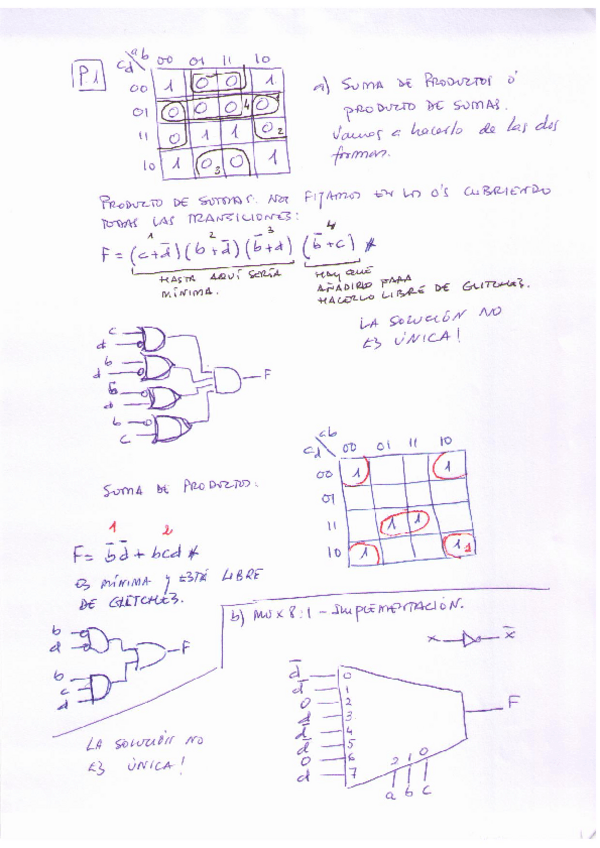 P1
ab
cd
00 01 11 10
00 1 0 0 1
01 0 0 0 4 0 1
11 0 1 1 0 2
10 1 0 3 0 1
a) SUMA DE PRODUCTOS Ó
PRODUCTO DE SUMAS.
Vamos a hacerlo de las dos
formas.
PRODUCTO DE SUMAS. NOS FIJAMOS EN LOS 0'S CUBRIENDO
TODAS LAS TRANSICIONES:
1 2 3 4
F = (c+d̅)(b+d̅)(b̅+d)(b̅+c) #
HASTA AQUÍ SERÍA
MÍNIMA.
HAY QUE
AÑADIRLO PARA
HACERLO LIBRE DE GLITCHES.
LA SOLUCIÓN NO
ES ÚNICA!
c
d
b
d
b
d
b
c
F
ab
cd
00 01 11 10
00 1 1
01
11 1 1
10 1 1
SUMA DE PRODUCTOS.
1 2
F = b̅d̅ + bcd #
ES MÍNIMA Y ESTÁ LIBRE
DE GLITCHES.
b
d
b
c
d
F
LA SOLUCIÓN NO
ES ÚNICA!
b) MUX 8:1 - IMPLEMENTACIÓN.
x x̅
d̅ 0
d̅ 1
0 2
d 3
d̅ 4
d̅ 5
0 6
d 7
F
2 1 0
a b c